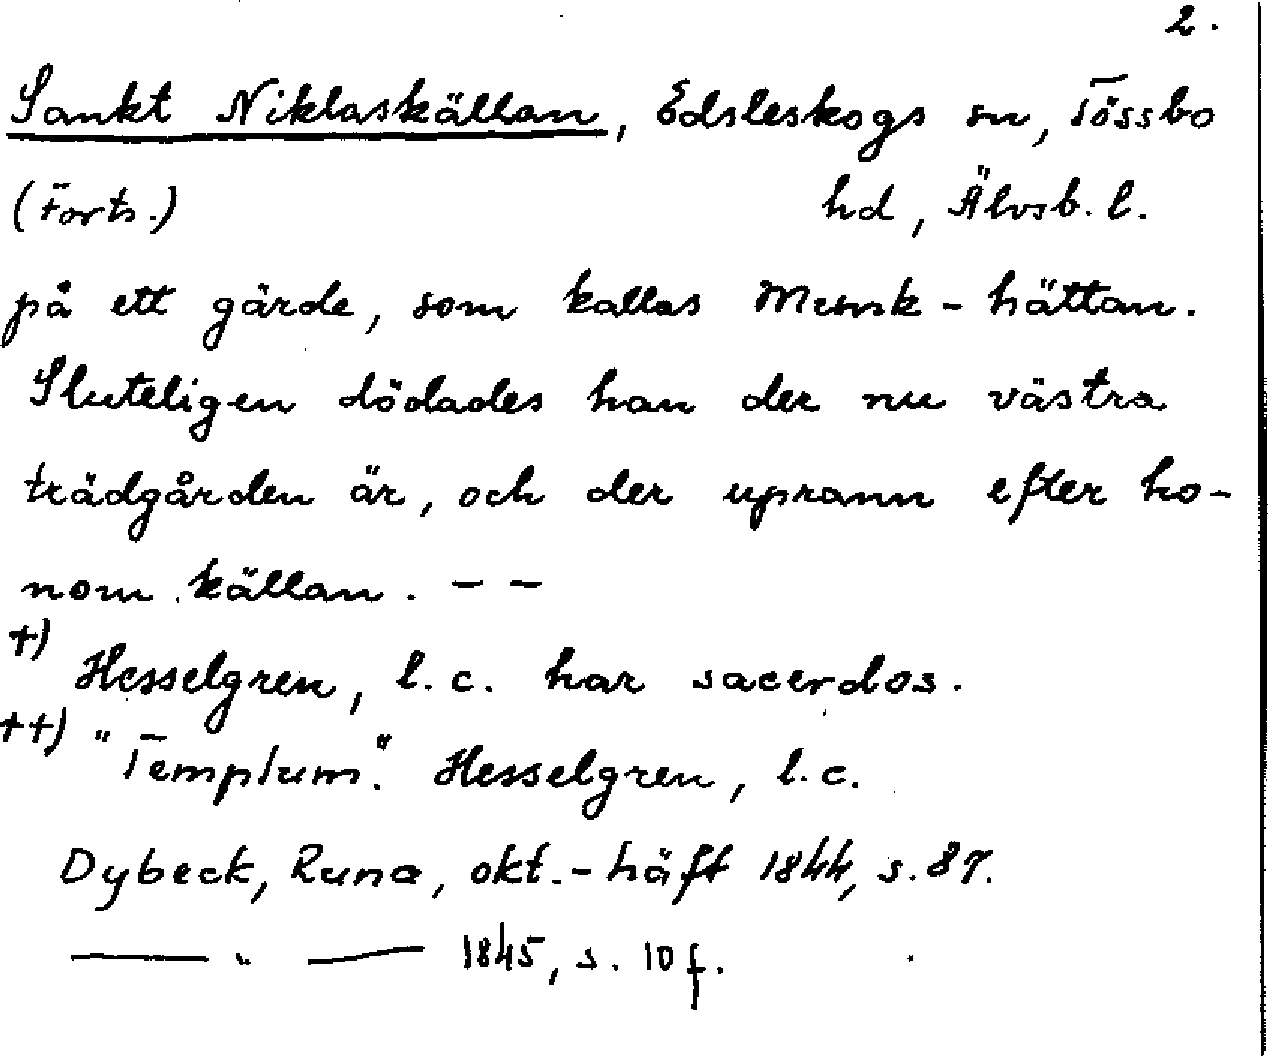 2.
Sankt Niklaskällan, Edsleskogs sn, Tössbo
(Forts.) hd, Älvsb. l.
på ett gärde, som kallas Munk-hättan.
Sluteligen dödades han der nu västra
trädgården är, och der uprann efter ho-
nom källan. - -
+) Hesselgren, l.c. har sacerdos.
++) "Templum". Hesselgren, l.c.
Dybeck, Runa, okt.-häft 1844, s. 87.
—— " —— 1845, s. 10 f.